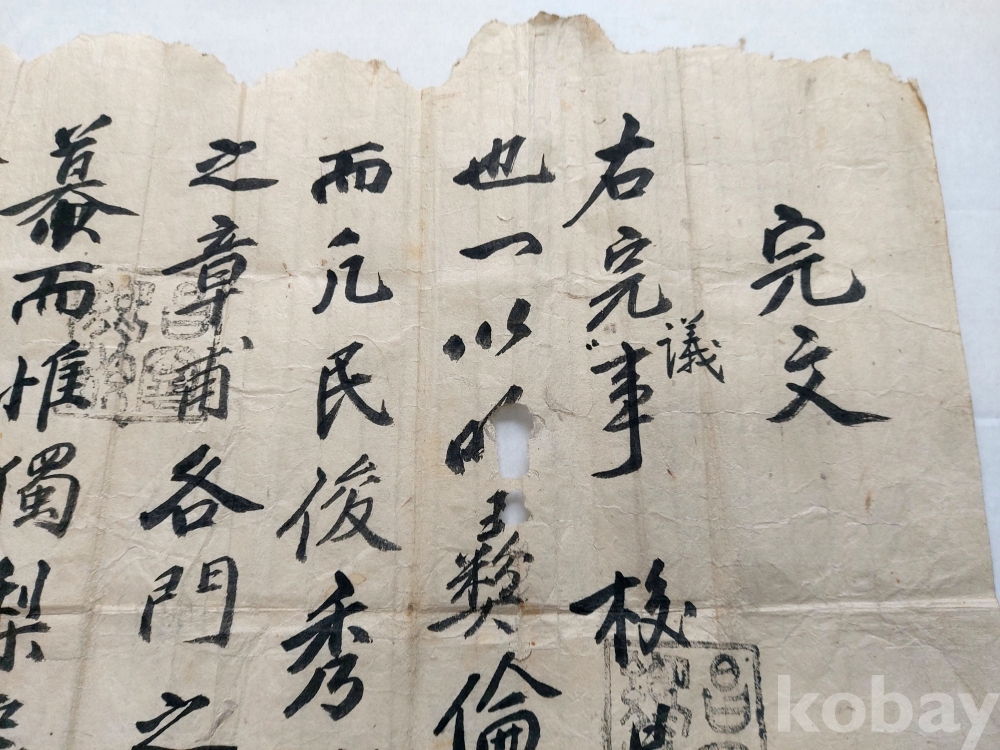 完文
右完議事 校
也一以明 彛倫
而凡民俊秀
之章甫各門之
慕而惟獨梨
kobay